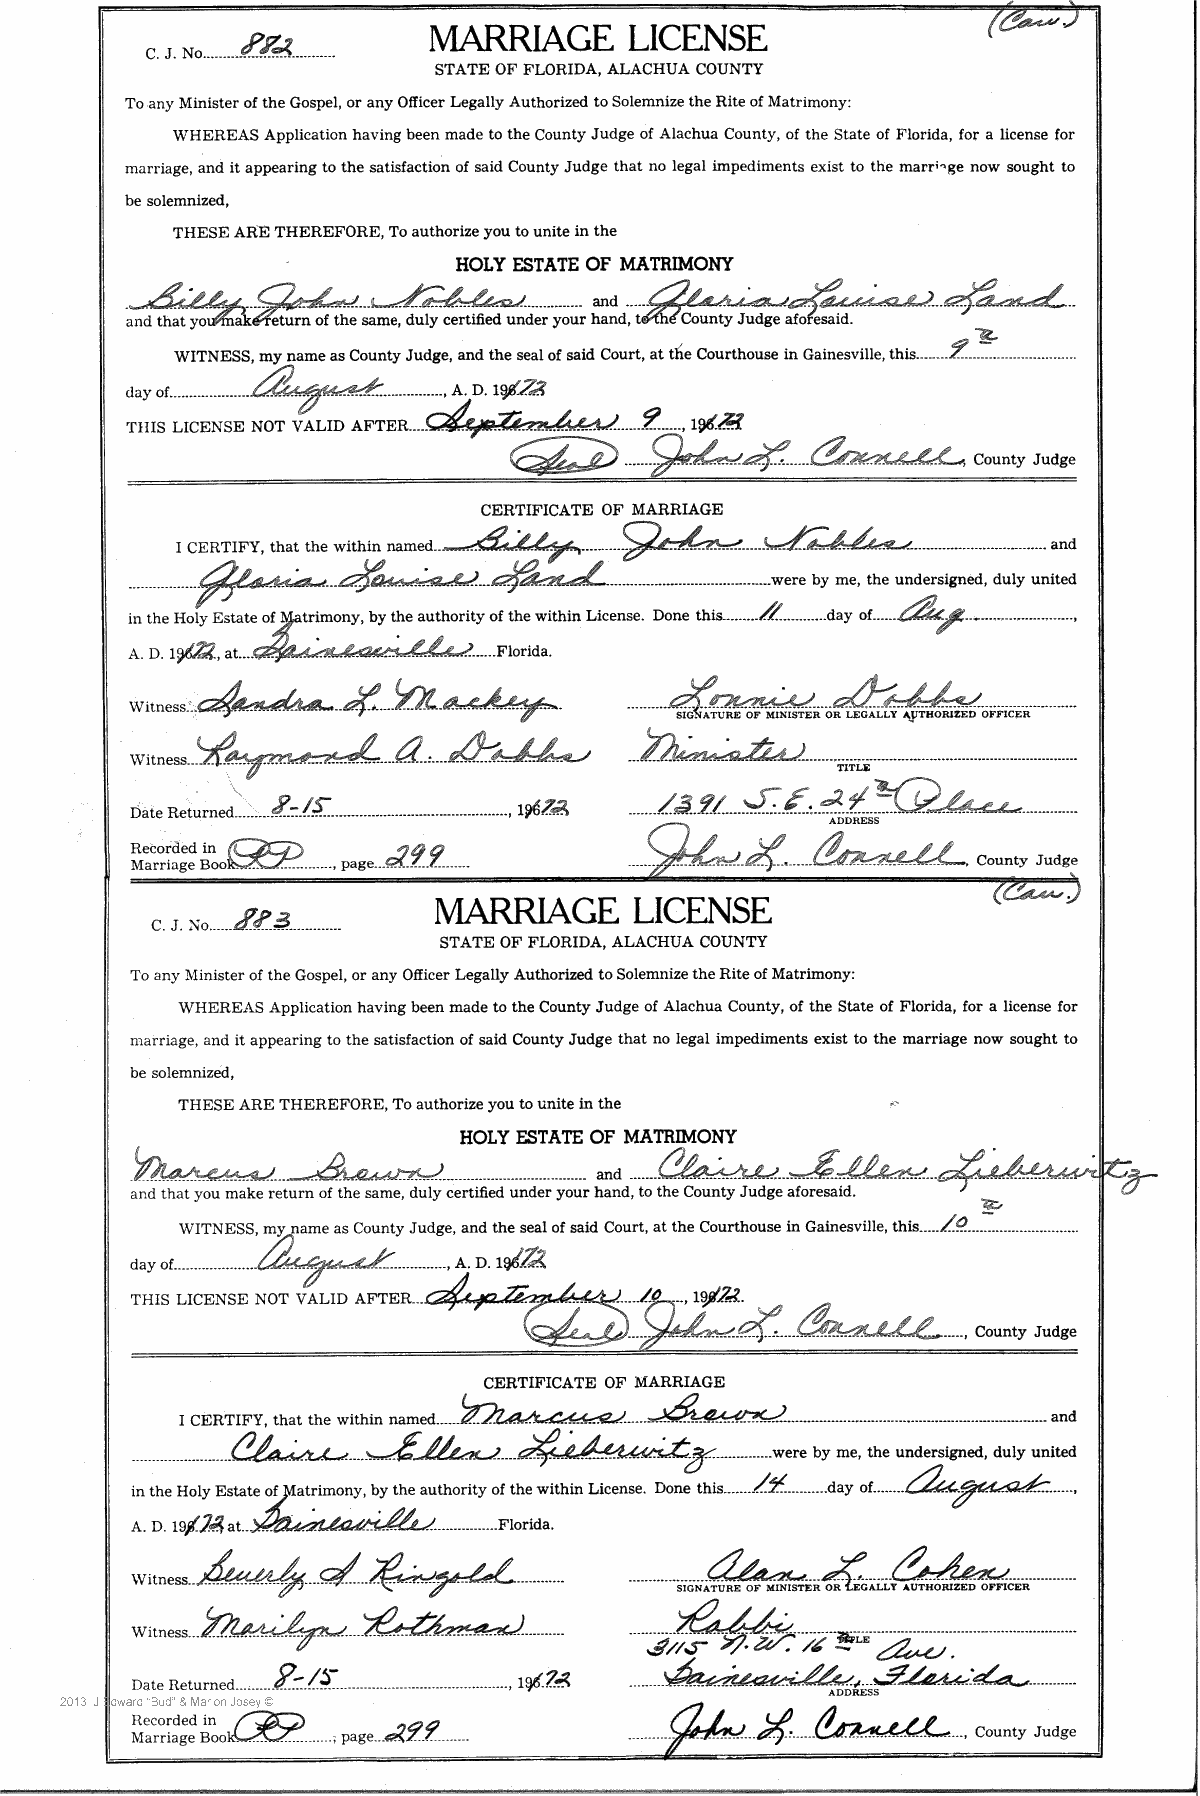 (Cau.)
C. J. No. 882 MARRIAGE LICENSE
STATE OF FLORIDA, ALACHUA COUNTY
To any Minister of the Gospel, or any Officer Legally Authorized to Solemnize the Rite of Matrimony:
WHEREAS Application having been made to the County Judge of Alachua County, of the State of Florida, for a license for
marriage, and it appearing to the satisfaction of said County Judge that no legal impediments exist to the marriage now sought to
be solemnized,
THESE ARE THEREFORE, To authorize you to unite in the
HOLY ESTATE OF MATRIMONY
Billy John Nobles and Gloria Louise Land
and that you make return of the same, duly certified under your hand, to the County Judge aforesaid.
WITNESS, my name as County Judge, and the seal of said Court, at the Courthouse in Gainesville, this 9th
day of August, A. D. 1972
THIS LICENSE NOT VALID AFTER September 9, 1972
(Seal) John L. Connell, County Judge
CERTIFICATE OF MARRIAGE
I CERTIFY, that the within named Billy John Nobles and
Gloria Louise Land were by me, the undersigned, duly united
in the Holy Estate of Matrimony, by the authority of the within License. Done this 11 day of Aug.,
A. D. 1972, at Gainesville Florida.
Witness Sandra L. Mackey Lonnie Dobbs
SIGNATURE OF MINISTER OR LEGALLY AUTHORIZED OFFICER
Witness Raymond A. Dobbs Minister
TITLE
Date Returned 8-15, 1972 1391 S.E. 24th Place
ADDRESS
Recorded in
Marriage Book, page 299 John L. Connell, County Judge
(Cau.)
C. J. No. 883 MARRIAGE LICENSE
STATE OF FLORIDA, ALACHUA COUNTY
To any Minister of the Gospel, or any Officer Legally Authorized to Solemnize the Rite of Matrimony:
WHEREAS Application having been made to the County Judge of Alachua County, of the State of Florida, for a license for
marriage, and it appearing to the satisfaction of said County Judge that no legal impediments exist to the marriage now sought to
be solemnized,
THESE ARE THEREFORE, To authorize you to unite in the
HOLY ESTATE OF MATRIMONY
Marcus Brown and Claire Ellen Lieberwitz
and that you make return of the same, duly certified under your hand, to the County Judge aforesaid.
WITNESS, my name as County Judge, and the seal of said Court, at the Courthouse in Gainesville, this 10th
day of August, A. D. 1972
THIS LICENSE NOT VALID AFTER September 10, 1972.
(Seal) John L. Connell, County Judge
CERTIFICATE OF MARRIAGE
I CERTIFY, that the within named Marcus Brown and
Claire Ellen Lieberwitz were by me, the undersigned, duly united
in the Holy Estate of Matrimony, by the authority of the within License. Done this 14 day of August,
A. D. 1972 at Gainesville Florida.
Witness Beverly A Ringold Alan L. Cohen
SIGNATURE OF MINISTER OR LEGALLY AUTHORIZED OFFICER
Witness Marilyn Rothman Rabbi
TITLE
3115 N.W. 16th Ave.
Date Returned 8-15, 1972 Gainesville, Florida
ADDRESS
2013 J Edward "Bud" & Marion Josey ©
Recorded in
Marriage Book, page 299 John L. Connell, County Judge